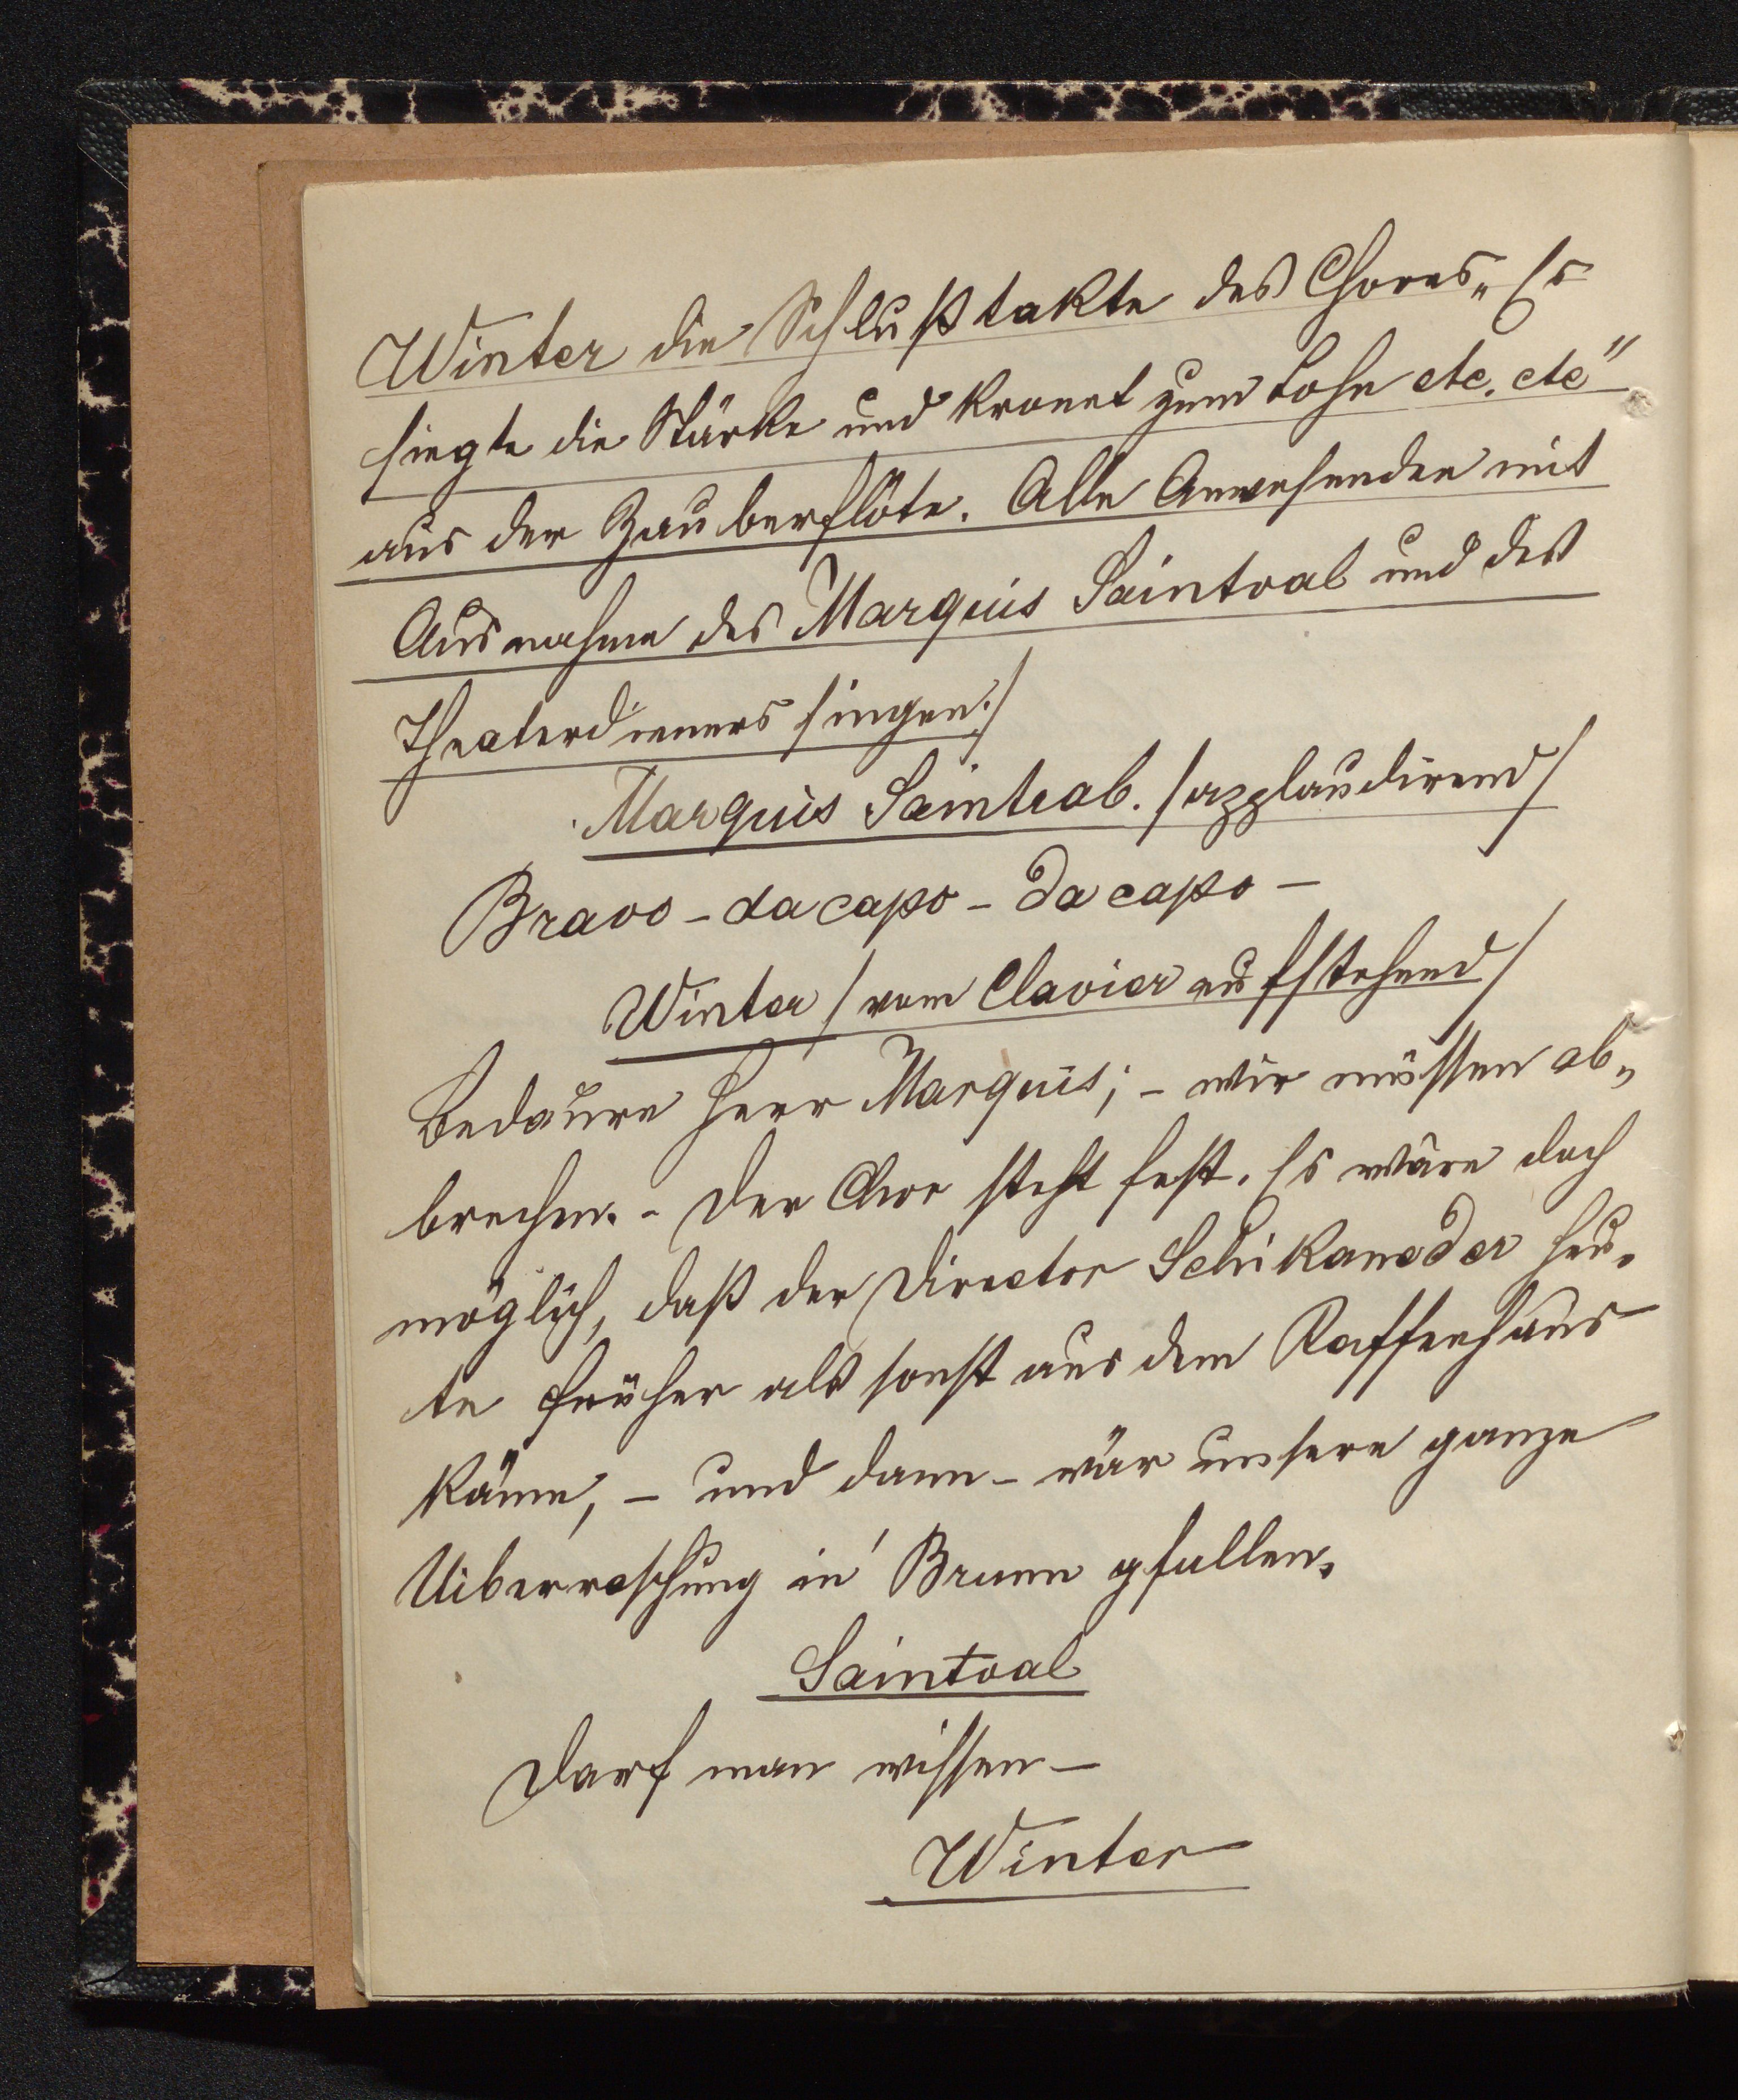 Winter die Schlußtakte des Chores „Es
siegte die Stärke und kronet zum Lohn etc. etc"
aus der Zauberflöte. Alle Anwesenden mit
Ausnahme des Marquis Saintval und des
Theaterdieners singen./
Marquis Saintval. /applaudirend/
Bravo - da capo - da capo -
Winter /vom Clavier aufstehend/
Bedaure Herr Marquis; - wir müssen ab„
brechen. - Der Chor steht fest. Es wäre doch
möglich, daß der Director Schikaneder heu„
te früher als sonst aus dem Kaffeehaus
käme, - und dann - wär unsere ganze
Uiberraschung in' Brunn gfallen.
Saintval
Darf man wissen -
Winter